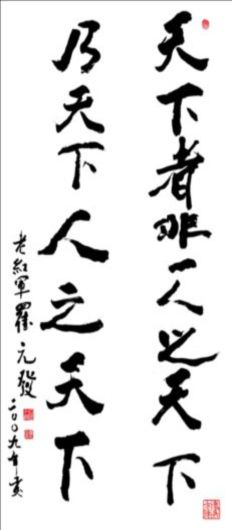 天下者非一人之天下
乃天下人之天下
老紅軍羅元發
二〇〇九年書